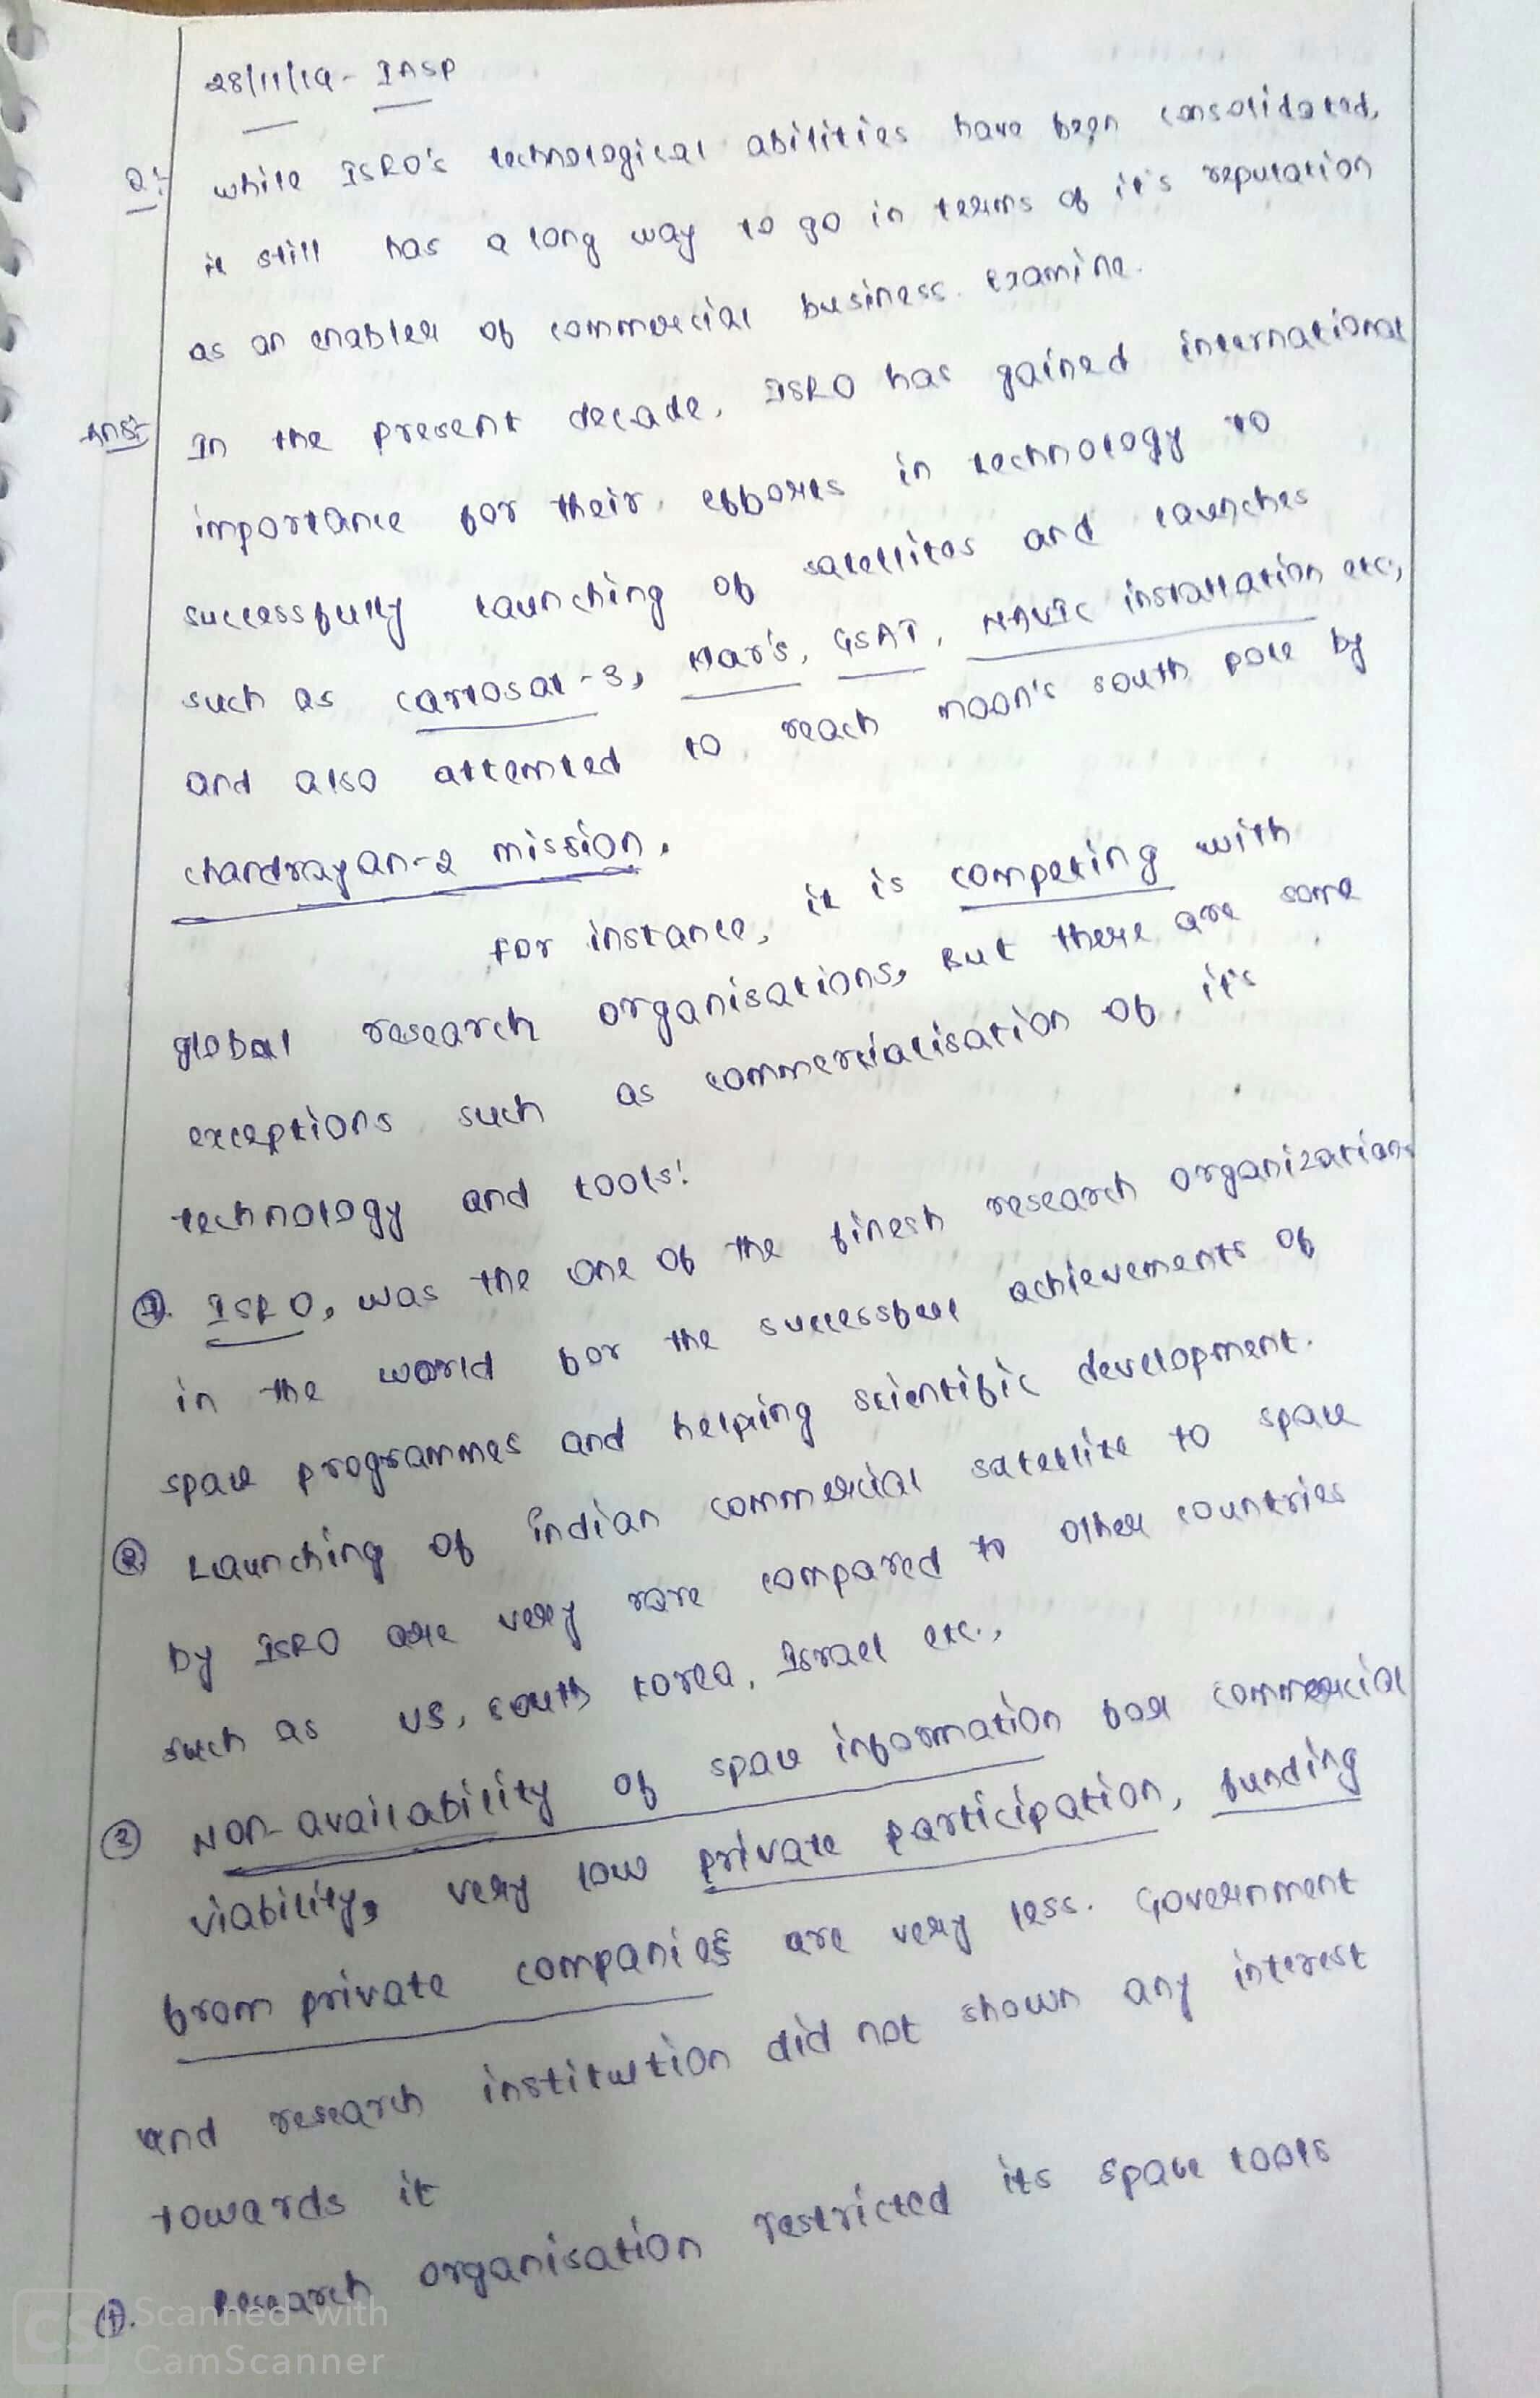 28/11/19 - IASP
Q:- while ISRO's technological abilities have been consolidated,
it still has a long way to go in terms of it's reputation
as an enabler of commercial business. examine.
Ans:- In the present decade, ISRO has gained international
importance for their efforts in technology to
successfully launching of satellites and launches
such as cartosat-3, Mar's, GSAT, NAVIC installation etc,
and also attemted to reach moon's south pole by
chandrayan-2 mission.
for instance, it is competing with
global research organisations, But there are some
exceptions such as commercialisation of it's
technology and tools:
①. ISRO, was the one of the finest research organizations
in the world for the successful achievements of
space programmes and helping scientific development.
② Launching of indian commercial satellite to space
by ISRO are very rare compared to other countries
such as US, south korea, Israel etc.,
③ Non-availability of space information for commercial
viability, very low private participation, funding
from private companies are very less. Government
and research institution did not shown any interest
towards it
④. Research organisation restricted its space tools
CS Scanned with
CamScanner